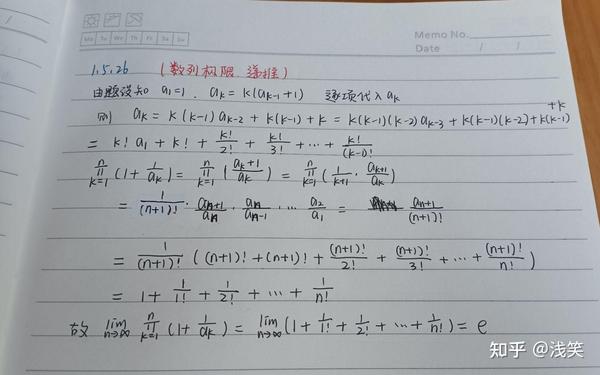 Memo No.
Mo Tu We Th Fr Sa Su
Date / /
1.5.26 (数列极限 递推)
由题设知 a₁=1. aₖ = k(aₖ₋₁+1) 逐项代入 aₖ
则 aₖ = k(k-1)aₖ₋₂ + k(k-1) + k = k(k-1)(k-2)aₖ₋₃ + k(k-1)(k-2) + k(k-1) + k
= k! a₁ + k! + k!/2! + k!/3! + ⋯ + k!/(k-1)!
∏ₖ₌₁ⁿ (1 + 1/aₖ) = ∏ₖ₌₁ⁿ ((aₖ+1)/aₖ) = ∏ₖ₌₁ⁿ (1/(k+1) · aₖ₊₁/aₖ)
= 1/(n+1)! · aₙ₊₁/aₙ · aₙ/aₙ₋₁ ⋯ a₂/a₁ = aₙ₊₁/(n+1)!
= 1/(n+1)! ((n+1)! + (n+1)! + (n+1)!/2! + (n+1)!/3! + ⋯ + (n+1)!/n!)
= 1 + 1/1! + 1/2! + ⋯ + 1/n!
故 lim_{n→∞} ∏ₖ₌₁ⁿ (1 + 1/aₖ) = lim_{n→∞} (1 + 1/1! + 1/2! + ⋯ + 1/n!) = e
知乎 @浅笑